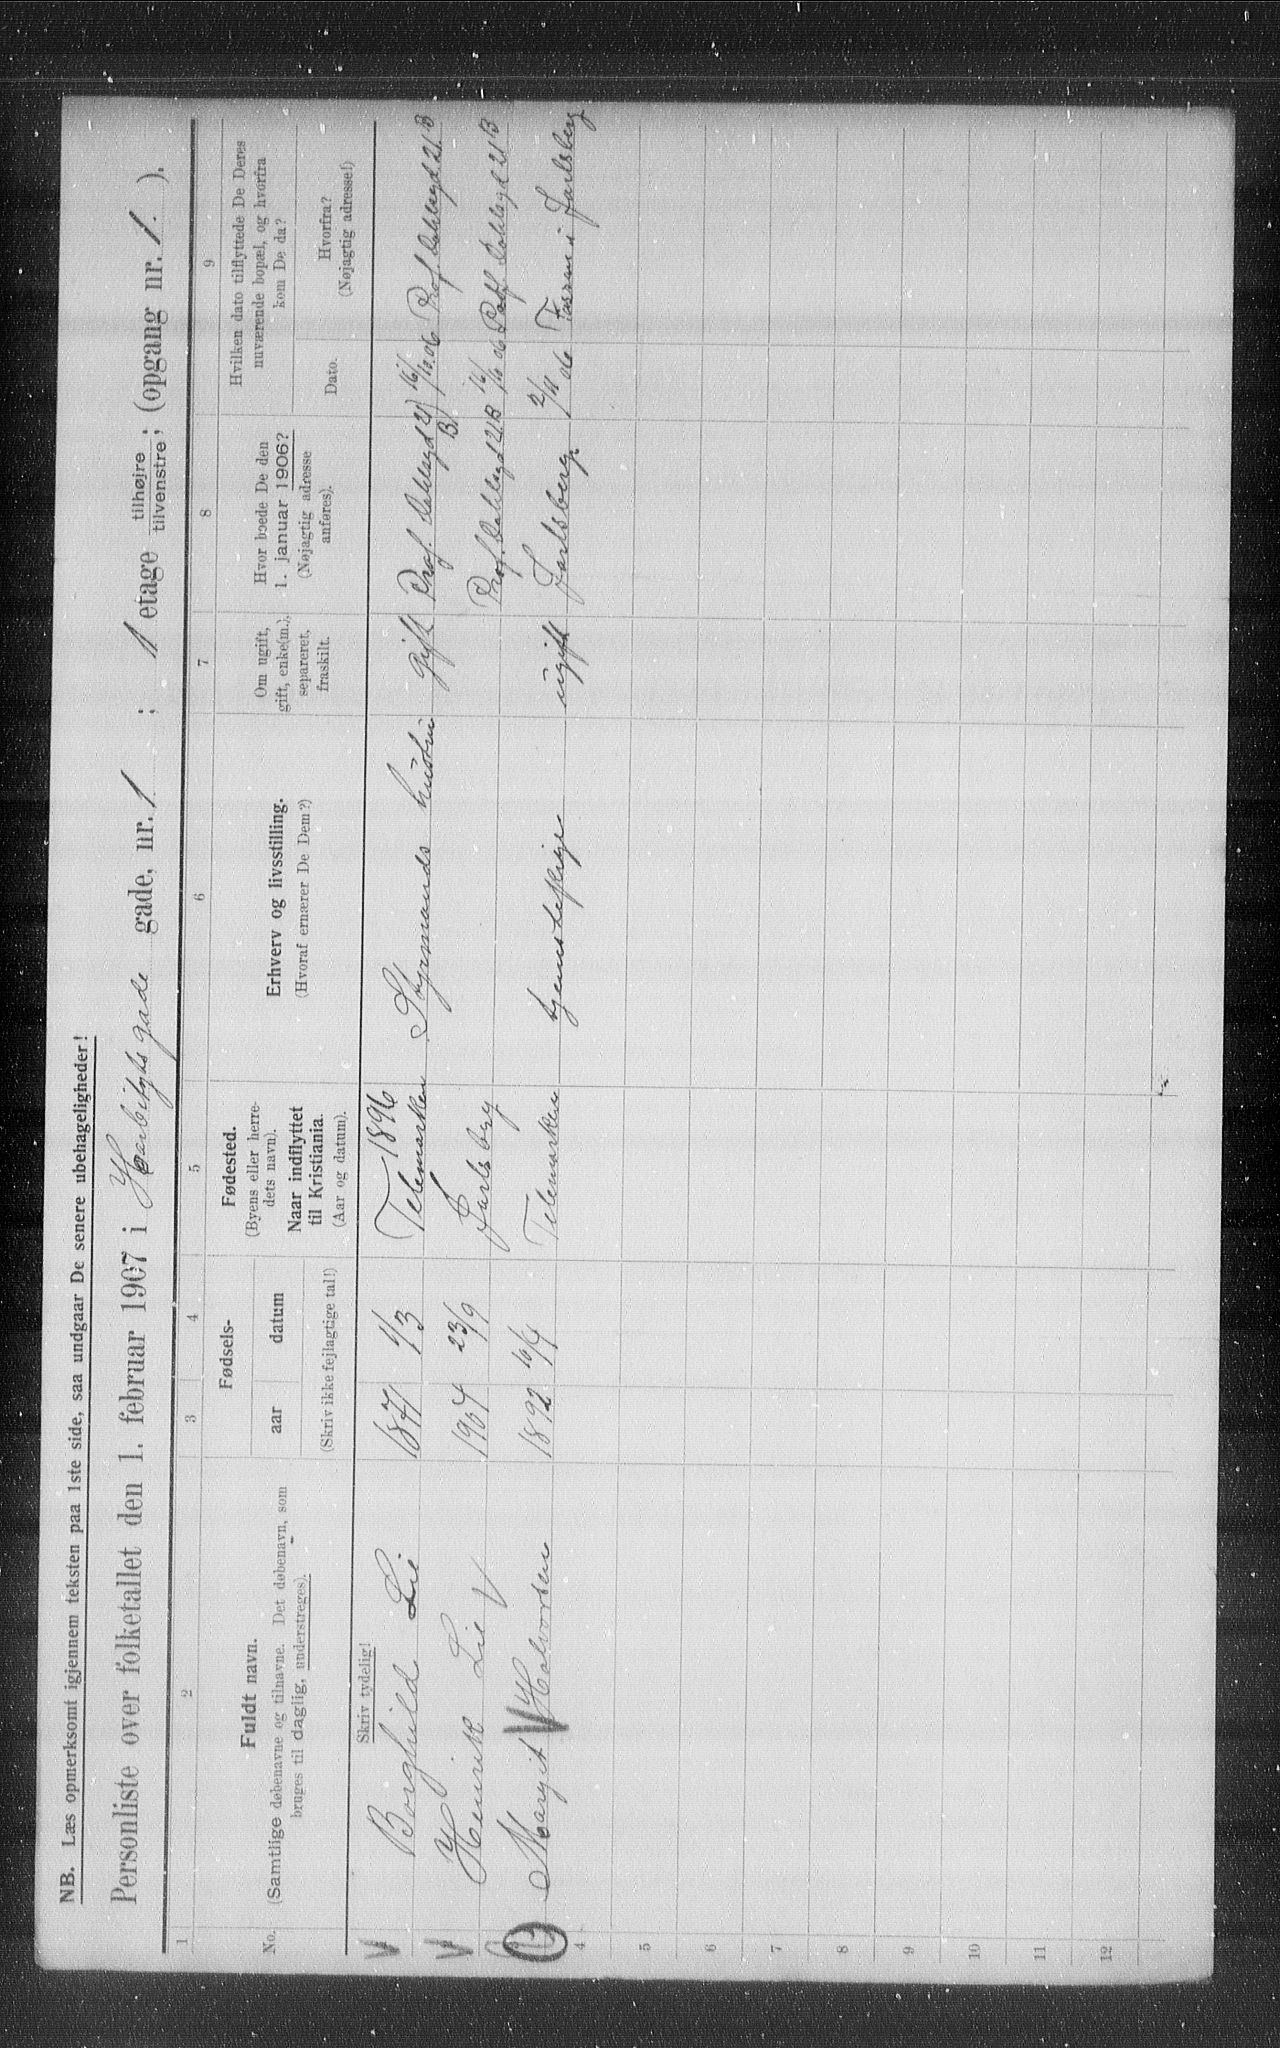 NB. Læs opmerksomt igjennem teksten paa 1ste side, saa undgaar De senere ubehageligheder!
Personliste over folketallet den 1. februar 1907 i Harbitzhs gade gade, nr. 1 ; 1 etage tilhøjre tilvenstre; (opgang nr. 1. ).
1 2 3 4 5 6 7 8 9
No.
Fuldt navn.
(Samtlige døbenavne og tilnavne. Det døbenavn, som
bruges til daglig, understreges).
Fødsels-
aar datum
(Skriv ikke fejlagtige tal!)
Fødested.
(Byens eller herre-
dets navn).
Naar indflyttet
til Kristiania.
(Aar og datum).
Erhverv og livsstilling.
(Hvoraf ernærer De Dem?)
Om ugift,
gift, enke(m.),
separeret,
fraskilt.
Hvor boede De den
1. januar 1906?
(Nøjagtig adresse
anføres).
Hvilken dato tilflyttede De Deres
nuværende bopæl, og hvorfra
kom De da?
Dato.
Hvorfra?
(Nøjagtig adresse!)
Skriv tydelig!
V Borghild Lie 1/3 1896 Telemarken Styrmands hustru gift Prof. Dahlsgd 21 B 16/10 06 Prof. Dahlsgd 21 B
V Henrik Lie V 1904 23/9 Jarlsberg Prof. Dahlsgd 21 B 16/10 06 Prof Dahlsgd 21 B
Margit V Halvorsen 1892 10/4 Telemarken tjenestepige ugift Jarlsberg 2/11 06 i Jarlsberg
4
5
6
7
8
9
10
11
12